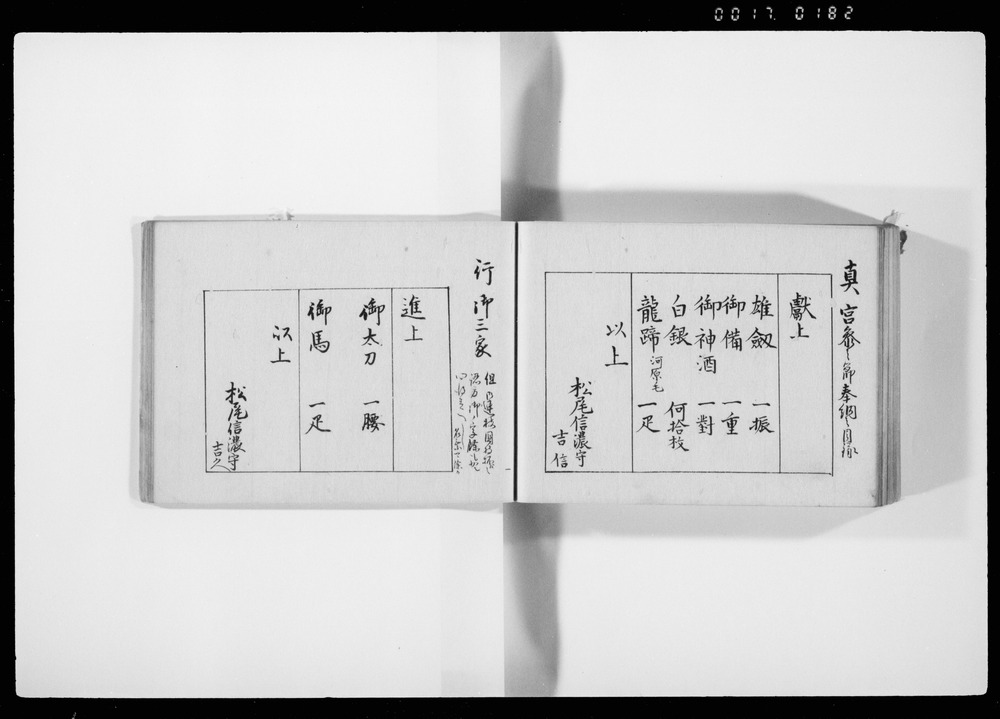 0017 0182
真 宮参之節奉納之目録
獻上
雄劔 一振
御備 一重
御神酒 一對
白銀 何拾枚
龍蹄 河原毛 一疋
以上
松尾信濃守
吉信
行 御三家
進上
御太刀 一腰
御馬 一疋
以上
松尾信濃守
吉久